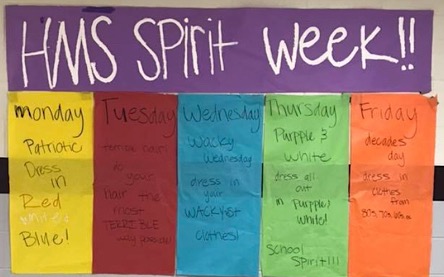 HMS SPirit Week!!
monday
Patriotic
Dress
in
Red
white &
Blue!
Tuesday
terrible
do your
Hair the
most
TERRIBLE
way possible!
Wednesday
Wacky
Wednesday
dress in
your
WACKYEST
clothes!
Thursday
Purpple &
White
dress all
out
in purple &
White!
School
Spirit!!!
Friday
decades
day
dress in
clothes
from